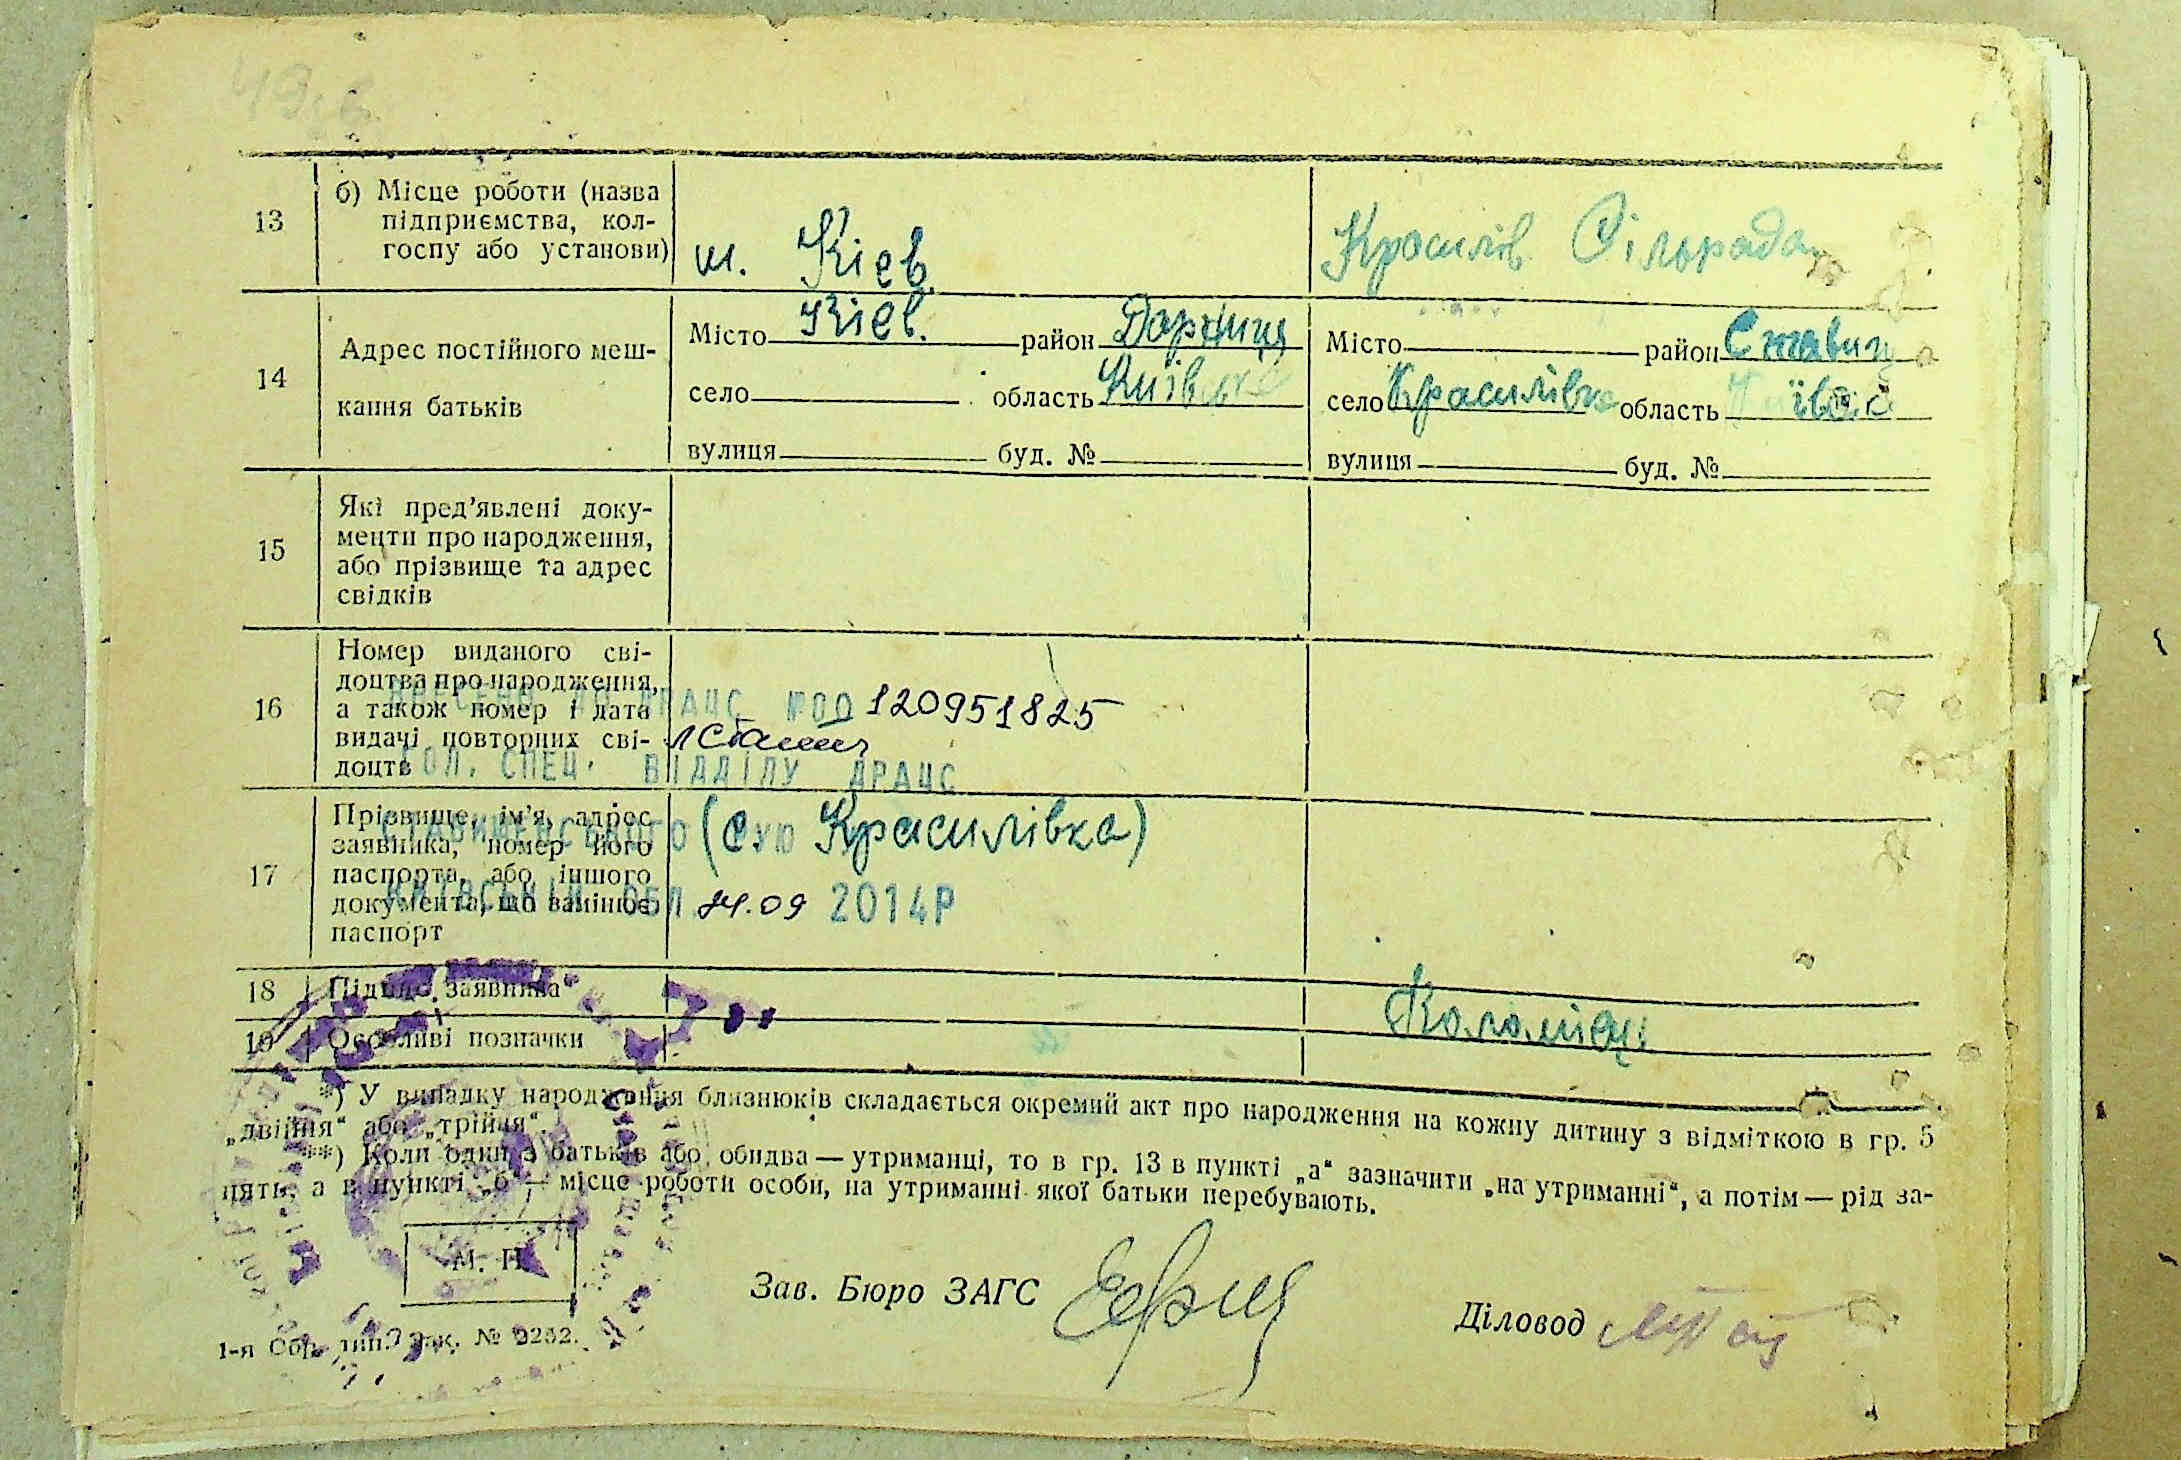 13
б) Місце роботи (назва
підприємства, кол-
госпу або установи)
м. Кієв
Красилів. Сільрада
14
Адрес постійного меш-
кання батьків
Місто Кієв. район Дарниця
село область Київська
вулиця буд. №
Місто район Ставищ
село Красилівка область Київ
вулиця буд. №
15
Які пред’явлені доку-
менти про народження,
або прізвище та адрес
свідків
16
Номер виданого сві-
доцтва про народження,
а також номер і дата
видачі повторних сві-
доцтв
ДРАЦС №00120951825
ГОЛ. СПЕЦ. ВІДДІЛУ ДРАЦС
17
Прізвище, ім’я, адрес
заявника, номер його
паспорта, або іншого
документа, що замінює
паспорт
СТАВИЩЕНСЬКОГО РУЮ
(с. Красилівка)
КИЇВСЬКІЙ ОБЛ. 24.09 2014Р
18
Підпис заявника
Коломієц
19
Особливі позначки
*) У випадку народження близнюків складається окремий акт про народження на кожну дитину з відміткою в гр. 5
„двійня“ або „трійня“.
**) Коли один з батьків або обидва — утриманці, то в гр. 13 в пункті „а“ зазначити „на утриманні“, а потім — рід за-
нять, а в пункті „б“ — місце роботи особи, на утриманні якої батьки перебувають.
М. П.
Зав. Бюро ЗАГС
Діловод
1-я Обр. тип. Зак. №